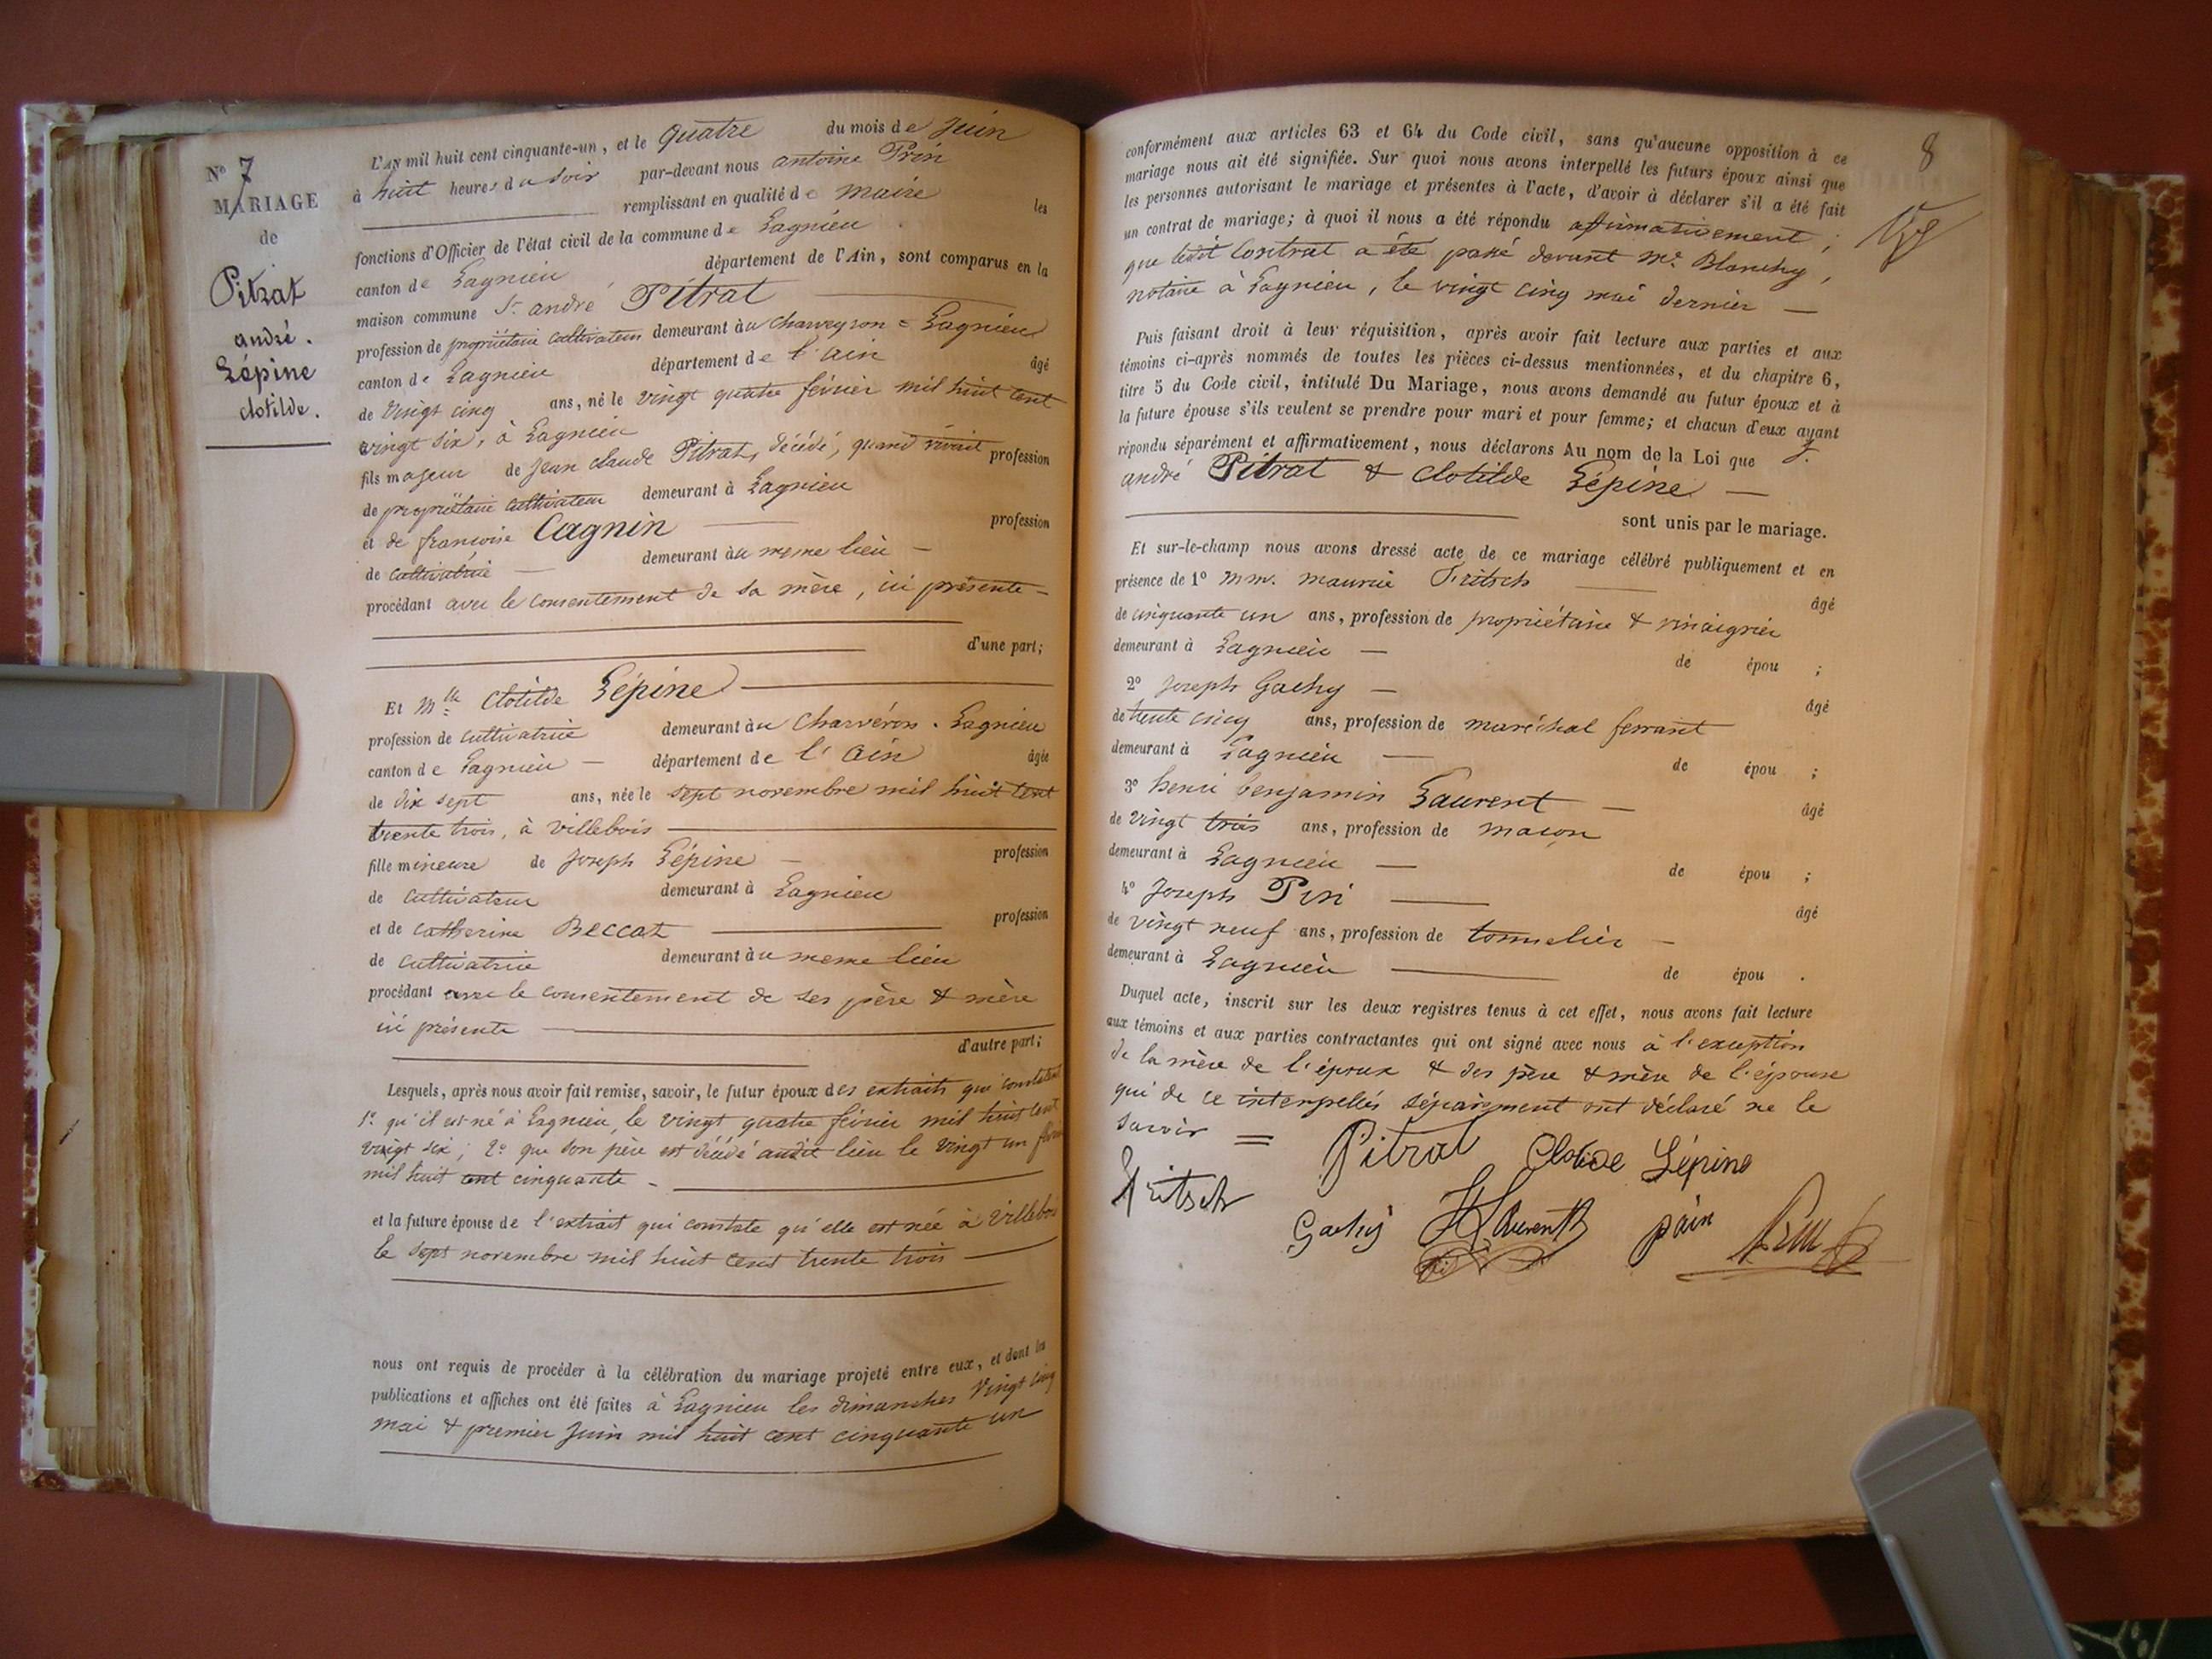 N° 7
MARIAGE
de
Pitrat
andré.
Lépine
clotilde.
L'AN mil huit cent cinquante-un, et le quatre du mois de Juin
à huit heures du soir par-devant nous antoine Prin
remplissant en qualité de maire les
fonctions d'Officier de l'état civil de la commune de Lagnieu
canton de Lagnieu département de l'Ain, sont comparus en la
maison commune Sr andré Pitrat
profession de propriétaire cultivateur demeurant au Charveyron = Lagnieu
canton de Lagnieu département de l'ain âgé
de vingt cinq ans, né le vingt quatre février mil huit cent
vingt six, à Lagnieu
fils majeur de Jean claude Pitrat, décédé, quand vivait profession
de propriétaire cultivateur demeurant à Lagnieu
et de françoise Cagnin profession
de cultivatrice demeurant au meme lieu
procédant avec le consentement de sa mère, ici présente
d'une part;
Et Mlle Clotilde Lépine
profession de cultivatrice demeurant au Charvéron. Lagnieu
canton de Lagnieu département de l'Ain âgée
de dix sept ans, née le sept novembre mil huit cent
trente trois, à villebois
fille mineure de Joseph Lépine profession
de cultivateur demeurant à Lagnieu
et de catherine Beccat profession
de cultivatrice demeurant au meme lieu
procédant avec le consentement de ses père & mère
ici présente
d'autre part;
Lesquels, après nous avoir fait remise, savoir, le futur époux des extraits qui constatent
1° qu'il est né à Lagnieu, le vingt quatre février mil huit cent
vingt six; 2° que son père est décédé audit lieu le vingt un
mil huit cent cinquante
et la future épouse de l'extrait qui constate qu'elle est née à Villebois
le sept novembre mil huit cent trente trois
nous ont requis de procéder à la célébration du mariage projeté entre eux, et dont les
publications et affiches ont été faites à Lagnieu les dimanches vingt cinq
mai & premier Juin mil huit cent cinquante un
8
conformément aux articles 63 et 64 du Code civil, sans qu'aucune opposition à ce
mariage nous ait été signifiée. Sur quoi nous avons interpellé les futurs époux ainsi que
les personnes autorisant le mariage et présentes à l'acte, d'avoir à déclarer s'il a été fait
un contrat de mariage; à quoi il nous a été répondu affirmativement;
que ledit Contrat a été passé devant Me. Blanchy,
notaire à Lagnieu, le vingt cinq mai dernier
Puis faisant droit à leur réquisition, après avoir fait lecture aux parties et aux
témoins ci-après nommés de toutes les pièces ci-dessus mentionnées, et du chapitre 6,
titre 5 du Code civil, intitulé Du Mariage, nous avons demandé au futur époux et à
la future épouse s'ils veulent se prendre pour mari et pour femme; et chacun d'eux ayant
répondu séparément et affirmativement, nous déclarons Au nom de la Loi que
andré Pitrat & Clotilde Lépine
sont unis par le mariage.
Et sur-le-champ nous avons dressé acte de ce mariage célébré publiquement et en
présence de 1° mm. maurice Fritsch
âgé
de cinquante un ans, profession de propriétaire & vinaigrier
demeurant à Lagnieu de épou ;
2° Joseph Gachy
âgé
de trente cinq ans, profession de maréchal ferrant
demeurant à Lagnieu de épou ;
3° henri benjamin Laurent
âgé
de vingt trois ans, profession de macon
demeurant à Lagnieu de épou ;
4° Joseph Prin
âgé
de vingt neuf ans, profession de tonnelier
demeurant à Lagnieu de épou .
Duquel acte, inscrit sur les deux registres tenus à cet effet, nous avons fait lecture
aux témoins et aux parties contractantes qui ont signé avec nous à l'exception
de la mère de l'époux & des père & mère de l'épouse
qui de ce interpellés séparément ont déclaré ne le
savoir =
Pitrat Clotide Lépine
Fritsch
Gachy HLaurent B prin Prin